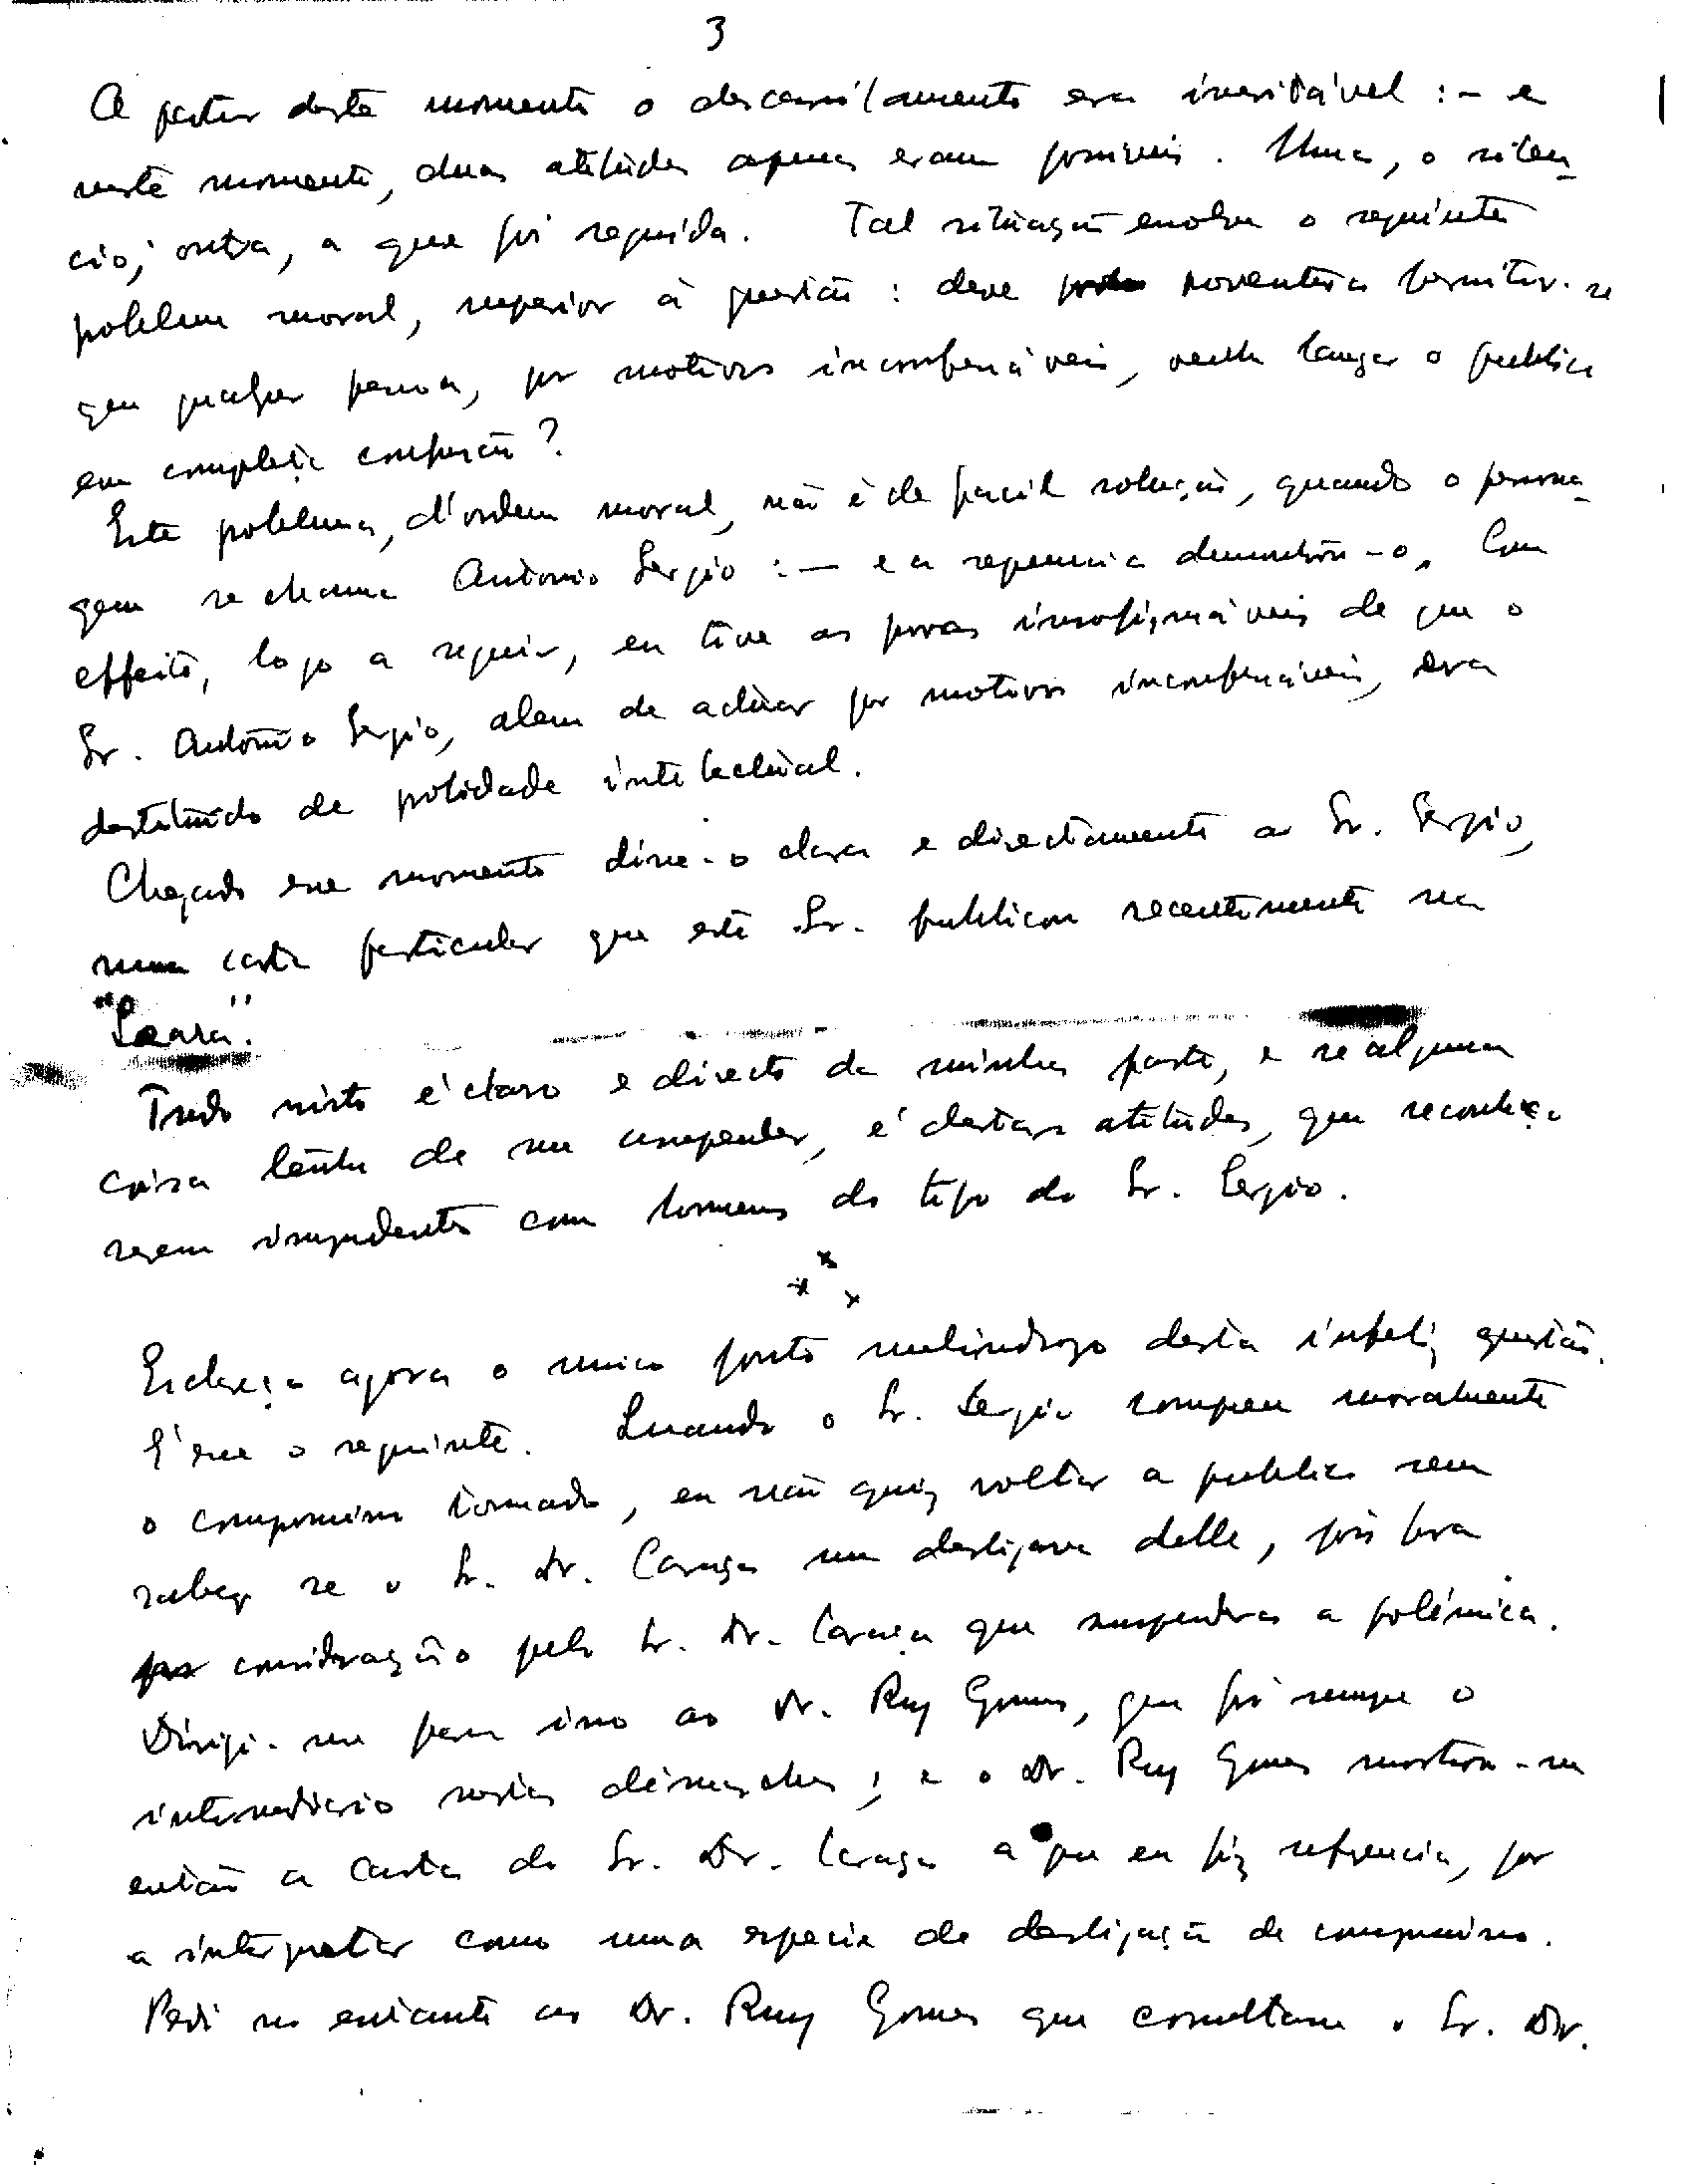 3
A partir deste momento o descarrilamento era inevitável : — e
neste momento, duas atitudes apenas eram possiveis. Uma, o silen-
cio; outra, a que foi seguida. Tal situação envolve o seguinte
problema moral, superior à questão : deve permitir-se
que qualquer pessoa, por motivos inconfessáveis, venha lançar o publico
em completa confusão?
Este problema, d'ordem moral, não é de facil solução, quando o persona-
gem se chama Antonio Sergio : — e a sequencia demonstrou-o. Com
effeito, logo a seguir, eu tive as provas insofismáveis de que o
Sr. Antonio Sergio, alem de actuar por motivos inconfessáveis, era
destituido de probidade intelectual.
Chegado esse momento disse-o clara e directamente ao Sr. Sergio,
numa carta particular que este Sr. publicou recentemente na
"Seara".
Tudo nisto é claro e directo da minha parte, e se alguma
coisa tenho de me arrepender, é destas atitudes, que reconheço
serem imprudentes com homens do tipo do Sr. Sergio.
x x x
Esclareço agora o unico ponto melindrozo desta infeliz questão.
É esse o seguinte. Quando o Sr. Sergio rompeu moralmente
o compromisso tomado, eu não quiz voltar a publico sem
saber se o Sr. Dr. Caraça me desligava delle, pois fora
por consideração pelo Sr. Dr. Caraça que suspendera a polémica.
Dirigi-me para isso ao Dr. Ruy Gomes, que foi sempre o
intermediario nestas démarches; e o Dr. Ruy Gomes mostrou-me
então a carta do Sr. Dr. Caraça a que eu fiz referencia, por
a interpretar como uma especie de desligação de compromisso.
Pedi no entanto ao Dr. Ruy Gomes que consultasse o Sr. Dr.